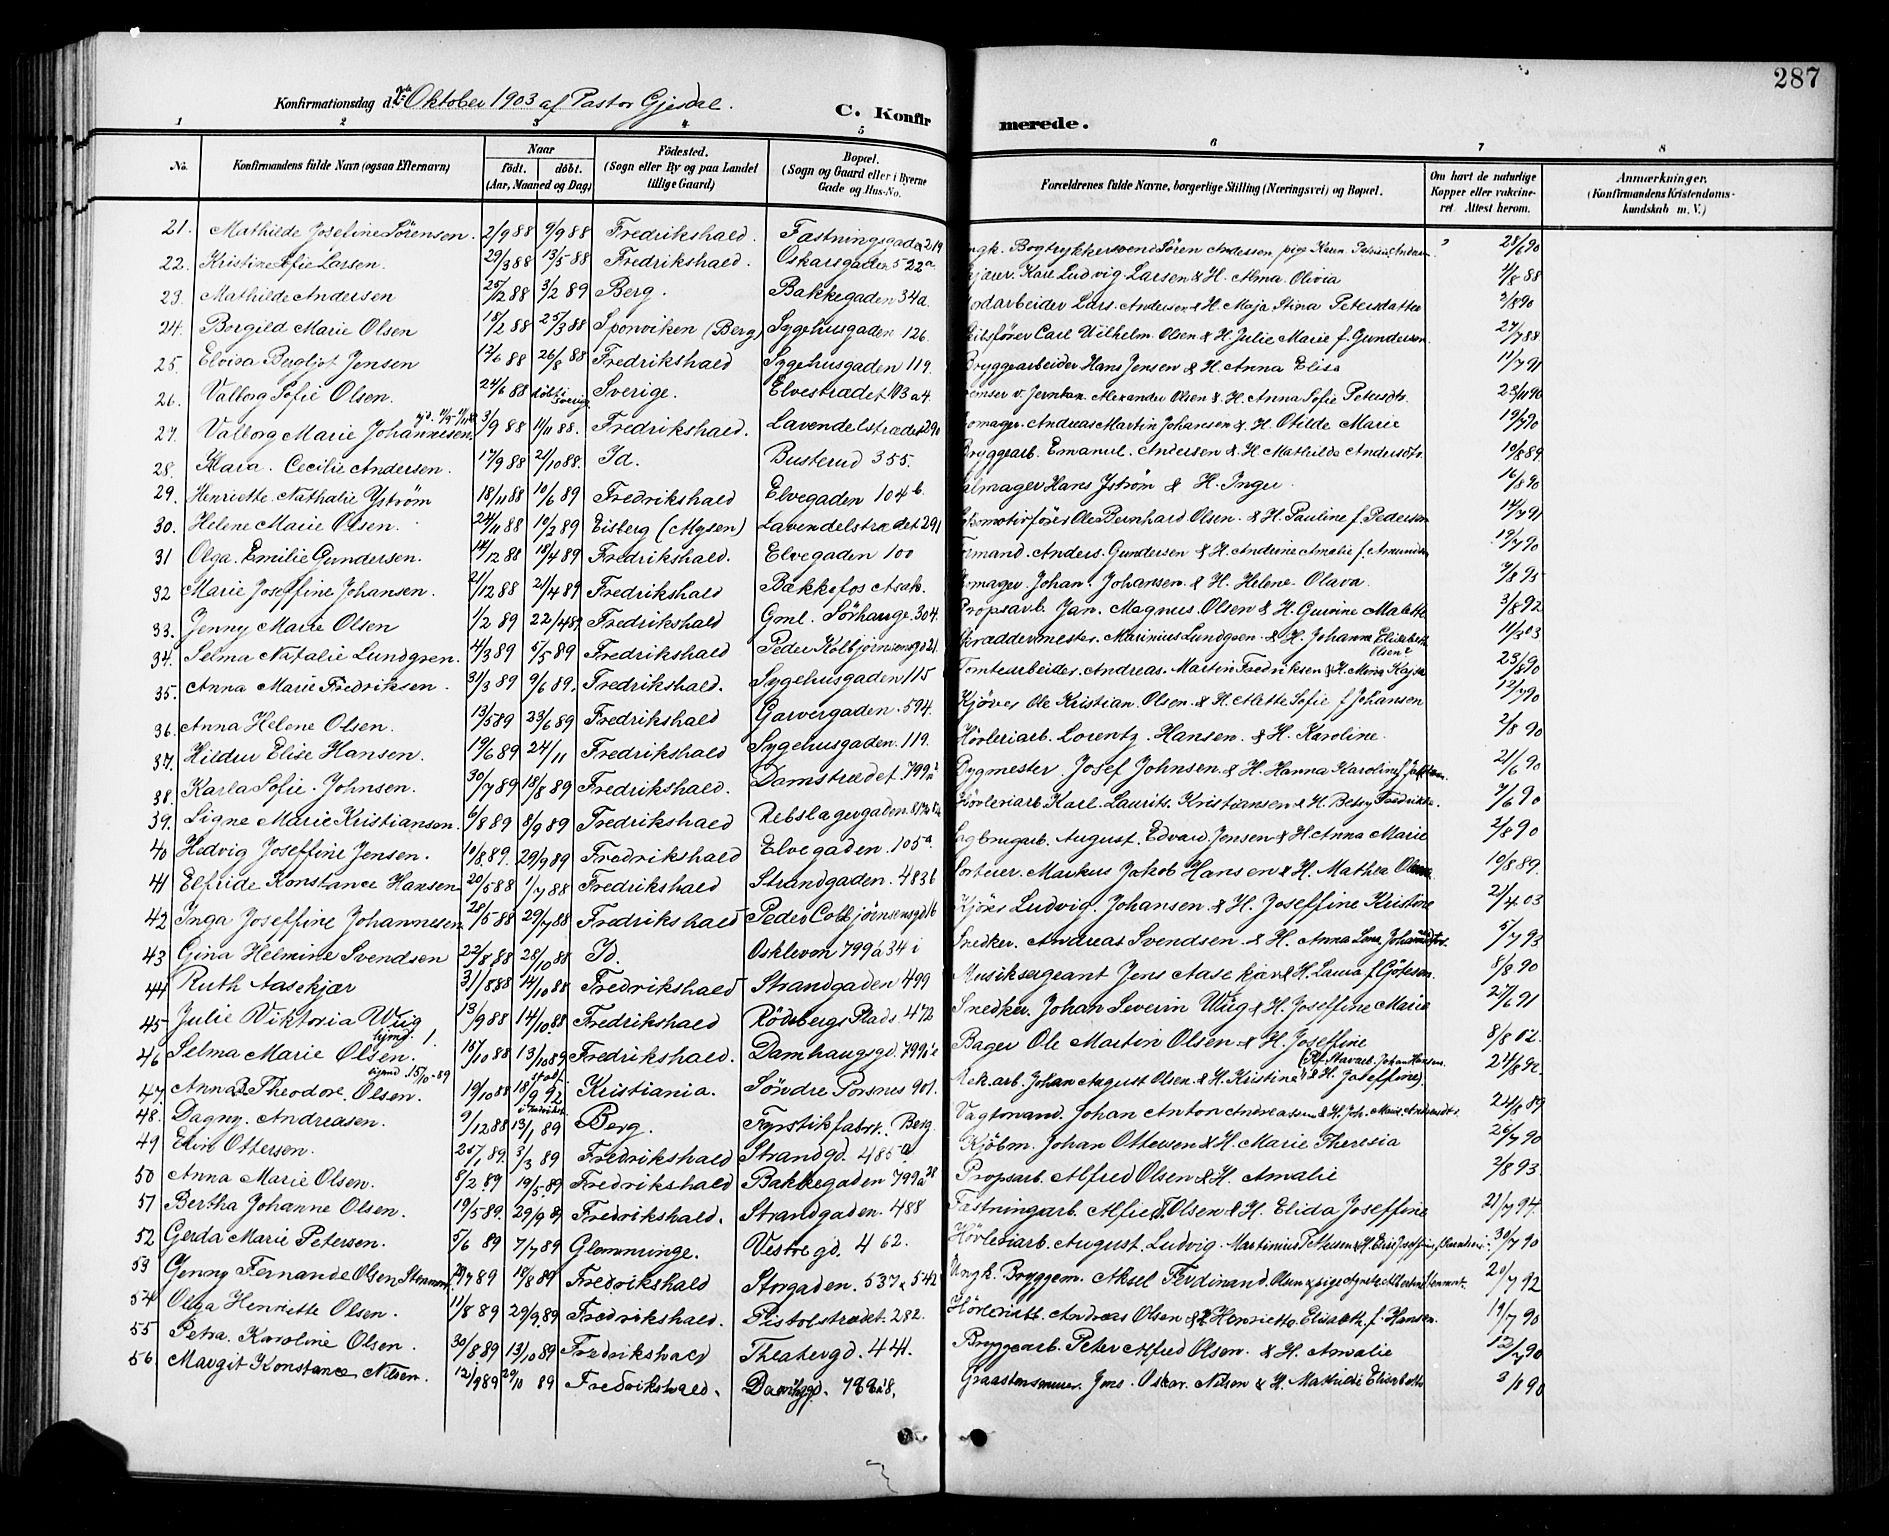 287
Konfirmationsdag d. Oktober 1903 af Pastor Gjesdal.
C. Konfirmerede.
1 2 3 4 5 6 7 8
No. Konfirmandens fulde Navn (ogsaa Efternavn) Naar født. døbt. (Aar, Maaned og Dag) Fødested. (Sogn eller By og paa Landet tillige Gaard) Bopæl. (Sogn og Gaard eller i Byerne Gade og Hus-No. Forældrenes fulde Navne, borgerlige Stilling (Næringsvei) og Bopæl. Om havt de naturlige Kopper eller vakcineret. Attest herom. Anmærkninger. (Konfirmandens Kristendomskundskab m. V.)
21. Mathilde Josefine Sørensen. 2/9 88 9/9 88 Fredrikshald. Fæstningsgaden 219 Ungk. Bogtrykkersvend Søren Andersen, pige Karen Petrine Andersen 28/6 90
22. Kristine Sofie Larsen. 29/3 88 13/5 88 Fredrikshald. Oskarsgaden 522a Karl Ludvig Larsen & H. Alma Olivia 1/8 88
23. Mathilde Andersen 25/12 88 3/2 89 Berg. Bakkegaden 34a. Jordarbeider Lars Andersen & H. Maja Stina Petersdatter 2/8 90
24. Borgild Marie Olsen 18/2 88 25/3 88 Sponviken (Berg) Sygehusgaden 126. Skibsfører Carl Wilhelm Olsen & H. Julie Marie f. Gundersen. 27/7 88
25. Elvira Bergljot Jensen 17/6 88 26/8 88 Fredrikshald Sygehusgaden 119. Bryggearbeider Hans Jensen & H. Anna Elise 11/7 91
26. Valborg Sofie Olsen. 24/6 88 døbt i Sverige Sverige. Elvestrædet 103 a 4 Bremser v. Jernban. Alexander Olsen & H. Anna Sofie Petersdtr. 23/11 90
27. Valborg Marie Johannesen 3/9 88 11/11 88. Fredrikshald. Lavendelstrædet 290 Skomager Andreas Martin Johansen & H. Otilde Marie 19/7 90
28. Klara Cecilie Andersen. 17/9 88 21/10 88. Id. Busterud 355. Bryggearb. Emanuel Andersen & H. Mathilde Andersdtr. 10/8 89
29. Henriette Nathalie Ystrøm 18/11 88 10/6 89 Fredrikshald Elvegaden 104b. Salmager Hans Ystrøm & H. Inger. 16/8 90
30. Helene Marie Olsen. 24/11 88 10/2 89 Eisberg (Mysen) Lavendelstrædet 291 Lokomotivfører Ole Bernhard Olsen & H. Pauline f. Pedersen 14/7 91
31 Olga Emilie Gundersen. 14/12 88 18/4 89 Fredrikshald. Elvegaden 100 Formand Anders Gundersen & H. Andrine Amalie f. Amundsen 19/7 90
32 Marie Joseffine Johansen. 21/12 88 21/4 89 Fredrikshald Bakkefos Asak. Skomager Johan Johansen & H. Helene Olava. 4/8 95
33. Jenny Marie Olsen 1/2 89 22/4 89 Fredrikshald Gml. Sørhauge 304. Propsarb. Jan Magnus Olsen & H. Gurine Malette 3/8 92
34. Selma Natalie Lundgren. 14/3 89 5/5 89 Fredrikshald Peder Kolbjørnsensgd 21. Skræddermester Marinius Lundgren & H. Johanne Elisabeth Olsen 11/3 03
35. Anna Marie Fredriksen. 31/3 89 9/6 89. Fredrikshald. Sygehusgaden 115 Tomtearbeider Andreas Martin Fredriksen & H. Mina Kajsa 23/8 90
36. Anna Helene Olsen. 13/5 89 23/6 89 Fredrikshald Garvergaden 594. Kjører Ole Kristian Olsen & H. Mette Sofie f. Johansen 12/7 90
37. Hildur Elise Hansen. 19/6 89 24/11 Fredrikshald Sygehusgaden 119. Høvleriarb. Lorentz Hansen & H. Karoline. 2/8 90
38. Karla Sofie Johnsen. 30/7 89 18/8 89 Fredrikshald. Damstrædet 799 Bygmester Josef Johnsen & H. Hanna Karoline 21/6 90
39. Signe Marie Kristiansen. 6/8 89 8/9 89 Fredrikshald Rebslagergaden Høvleriarb. Karl Laurits Kristiansen & H. Betsy Fredrikke. 7/6 90
40 Hedvig Joseffine Jensen. 10/8 89. 29/9 89 Fredrikshald Elvegaden 105a Sagbrugarb. August Edvard Jensen & H. Anna Marie 2/8 90
41 Elfride Konstance Hansen 20/5 88 1/7 88 Fredrikshald Strandgaden 483b Sorterer Markus Jakob Hansen & H. Mathea Olsen 10/8 89.
42 Inga Joseffine Johannesen 28/5 88 29/7 88 Fredrikshald Peder Colbjørnsensgd 16 Kjører Ludvig Johansen & H. Joseffine Kristine 21/4 03
43 Gina Helmine Svendsen 22/8 88 28/10 88 Id. Oskleven 799 a 34 i Snedker Andreas Svendsen & H. Anna Lone Johannesdtr. 5/7 93
44 Ruth Aasekjær 31/8 88 14/10 88 Fredrikshald Strandgaden 499 Musiksergeant Jens Aasekjær & H. Laura f. Gøtesen. 8/8 90
45. Julie Viktoria Wiig 13/9 88 14/10 88 Fredrikshald Rødsbergs Plads 472 Snedker Johan Severin Wiig & H. Joseffine Marie 27/6 91
46. Selma Marie Olsen. 15/10 88 13/10 89 Fredrikshald. Damhaugsgd. 799 Bager Ole Martin Olsen & H. Joseffine 8/8 02.
47. Anna Theodore Olsen. hjmd 15/10-89 19/10 88 18/9 92 Kristiania. Søndre Porsnes 901. Mek.arb. Johan August Olsen & H. Kristine (Pf. Stavarb. Johan Hansen & H. Joseffine) 24/8 90
48. Dagny Andreasen. 9/12 88 13/1 89 Berg. Fyrstikfabrk. Berg. Vagtmand Johan Anton Andreasen & H. Joh. Marie Andreasdtr. 24/8 89
49 Elin Ottersen. 25/1 89. 3/3 89 Fredrikshald Strandgd. 485a Kjøbm. Johan Ottersen & H. Marie Theresia 26/7 90
50 Anna Marie Olsen. 8/2 89 19/5 89 Fredrikshald Bakkegaden 799a28 Propsarb. Alfred Olsen & H. Amalie 2/8 93.
51 Bertha Johanne Olsen. 19/5 89. 29/9 89 Fredrikshald. Strandgaden 488 Fæstningarb. Alfred Olsen & H. Elida Joseffine 21/7 94.
52 Gerda Marie Petersen. 5/6 89 7/7 89 Glemminge. Vestregd. 462. Høvleriarb. August Ludvig Martinius Petersen & H. Elise Joseffine 30/7 90
53 Jenny Fernande Olsen Stenmark 29/7 89 18/8 89 Fredrikshald Storgaden 537 & 542 Ungk. Bryggem. Aksel Ferdinand Olsen & pige Agnete Albertine Stenmark. 20/7 92
54 Olga Henriette Olsen. 11/8 89 29/9 89 Fredrikshald. Pistolstrædet 282. Høvleriarb. Andreas Olsen & H. Henriette Elisabeth f. Hansen. 19/7 90
55 Petra Karoline Olsen. 30/8 89 13/10 89 Fredrikshald Theatergd. 441. Bryggearb. Peter Alfred Olsen & H. Amalie 12/7 90
56. Margit Konstance Nilsen. 12/9 89 20/10 89 Fredrikshald. Damhsgd. 799a8, Graastensmurer Jens Oskar Nilsen & H. Mathilde Elisabeth 2/8 90